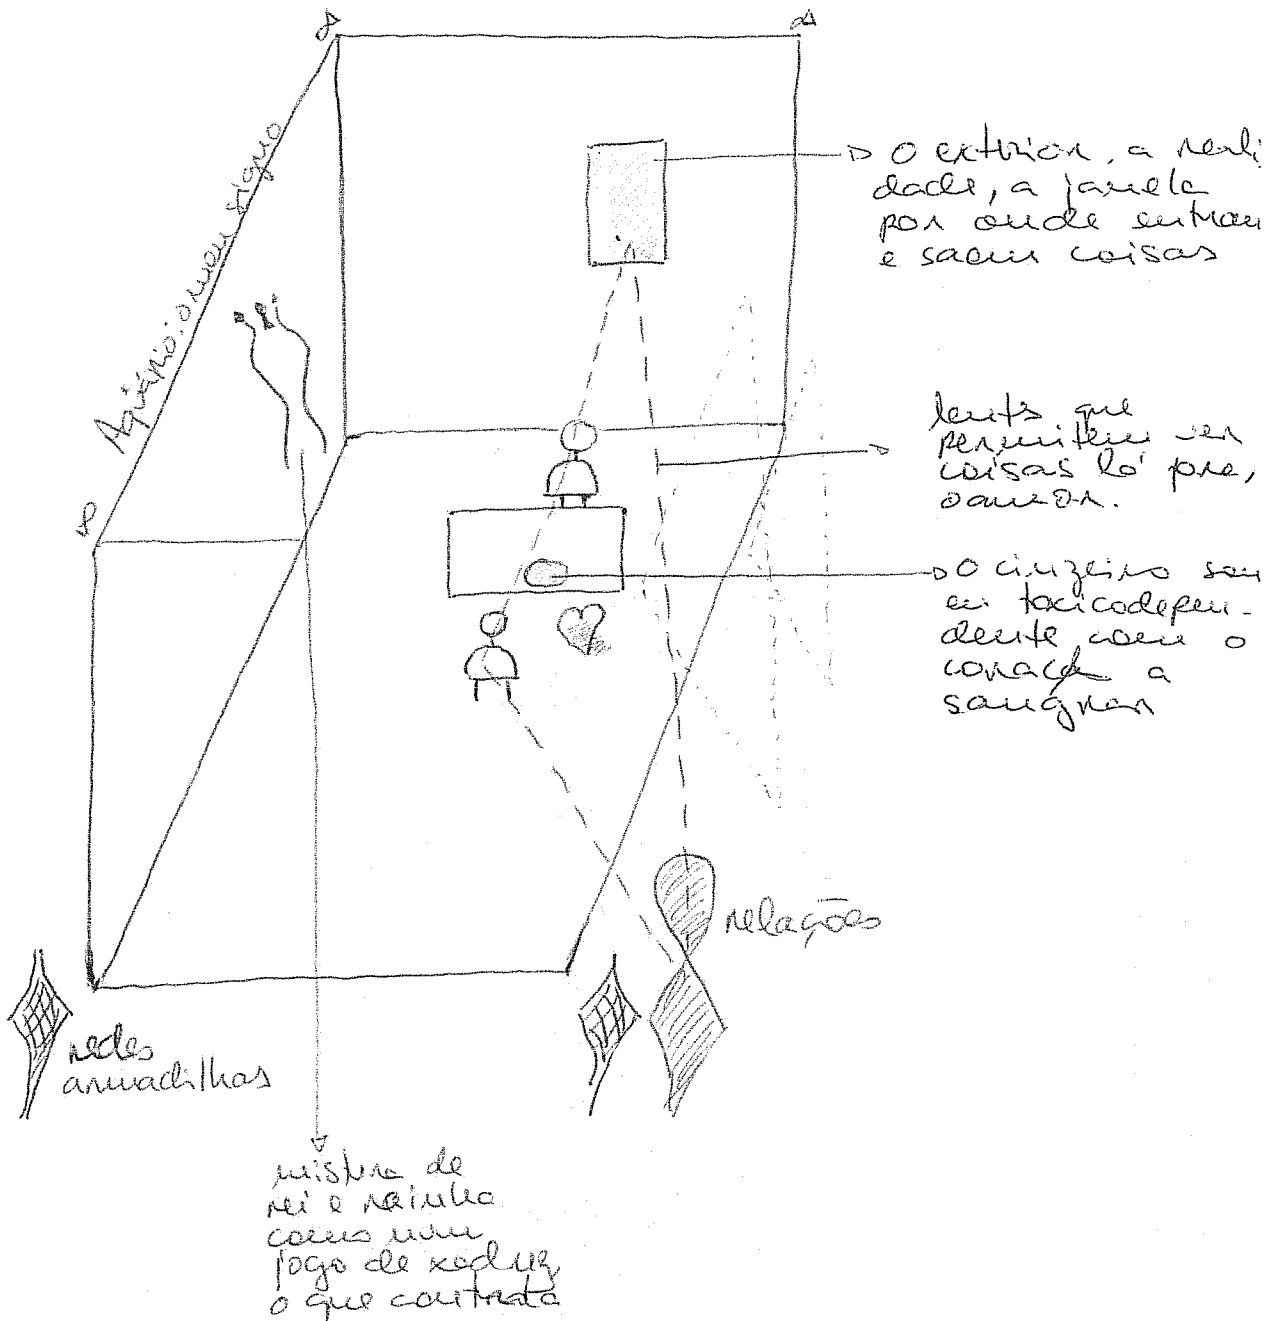 Aquário: o meu signo
o exterior, a reali
dade, a janela
por onde entram
e saem coisas
lents que
permitem ver
coisas lá pra,
o amor.
o cinzeiro sou
eu toxicodepen-
dente com o
coração a
sangrar
relações
redes
armadilhas
mistura de
rei e rainha
como num
jogo de xadrez
o que contrata